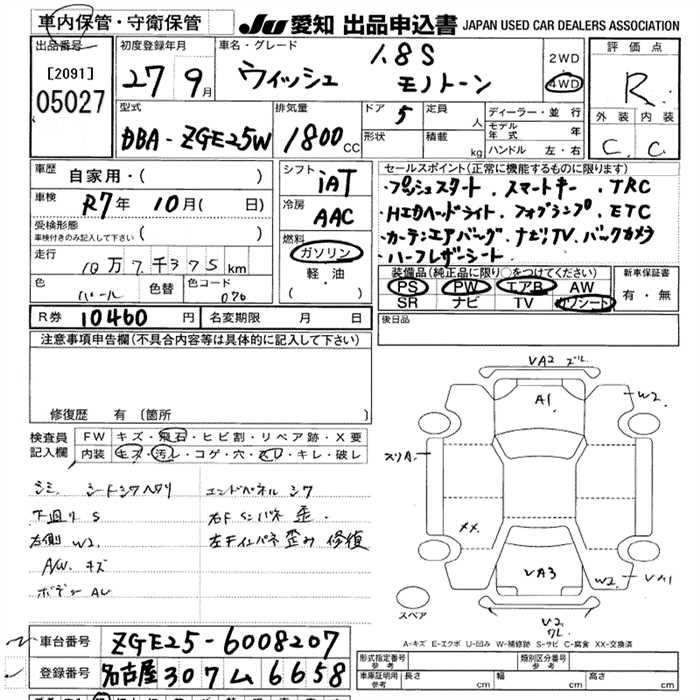 車内保管・守衛保管
JU 愛知 出品申込書 JAPAN USED CAR DEALERS ASSOCIATION
出品番号
[2091]
05027
初度登録年月
27 9月
車名・グレード
1.8S
ウィッシュ モノトーン
2WD
4WD
評価点
R
外装 内装
C C
型式
DBA-ZGE25W
排気量
1800 CC
ドア 5
定員 人
形状
積載 kg
ディーラー・並行
モデル年式 年
ハンドル 左・右
車歴 自家用・( )
車検 R7年 10月( 日)
受検形態
車検付きのみ記入して下さい ( )
走行 10万7千375km
色 パール
色替
色コード 070
シフト iAT
冷房 AAC
燃料 ガソリン
軽・油
( )
セールスポイント(正常に機能するものに限ります)
・プッシュスタート.スマートキー.TRC
・HIDヘッドライト.フォグランプ.ETC
・カーテンエアバッグ.ナビTV.バックカメラ
・ハーフレザーシート
装備品(純正品に限り○をつけてください)
PS PW エアB AW
SR ナビ TV カワシート
新車保証書
有・無
R券 10460円
名変期限 月 日
後日品
注意事項申告欄(不具合内容等は具体的に記入して下さい)
修復歴 有 〔箇所 〕
検査員記入欄
FW キズ・飛石・ヒビ割・リペア跡・X要
内装 キズ・汚レ・コゲ・穴・スレ・キレ・破レ
シミ シートシワヘタリ
下廻り S
右側 W2
A/W キズ
ボディー AU
エンドパネル シワ
右F インパネ 歪
左Fインパネ 歪み 修復
VA2 ズレ
A1
W2
スリA
XX
VA3
W2
スペア
A-キズ E-エクボ U-凹み W-補修跡 S-サビ C-腐食 XX-交換済
車台番号 ZGE25-6008207
登録番号 名古屋 307 ム 6658
形式指定番号 参考
類別区分番号 参考
車庫証明用 参考 長さ cm 幅 cm 高さ cm